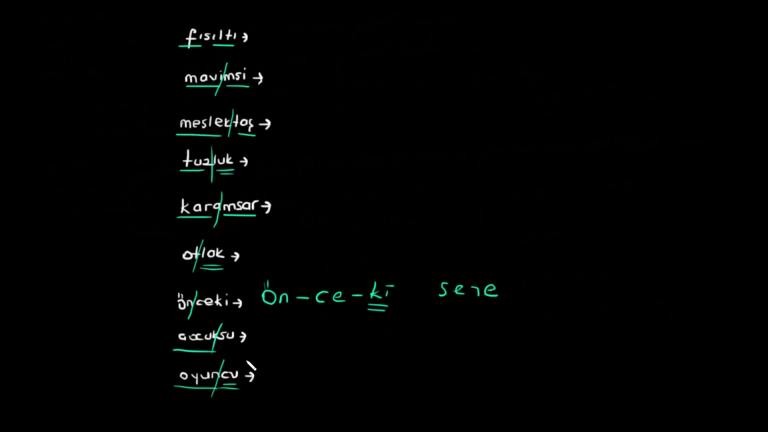 fısıltı →
mavimsi →
meslektaş →
tuzluk →
karamsar →
otlak →
önceki → Ön - ce - ki sene
çocuksu →
oyuncu →